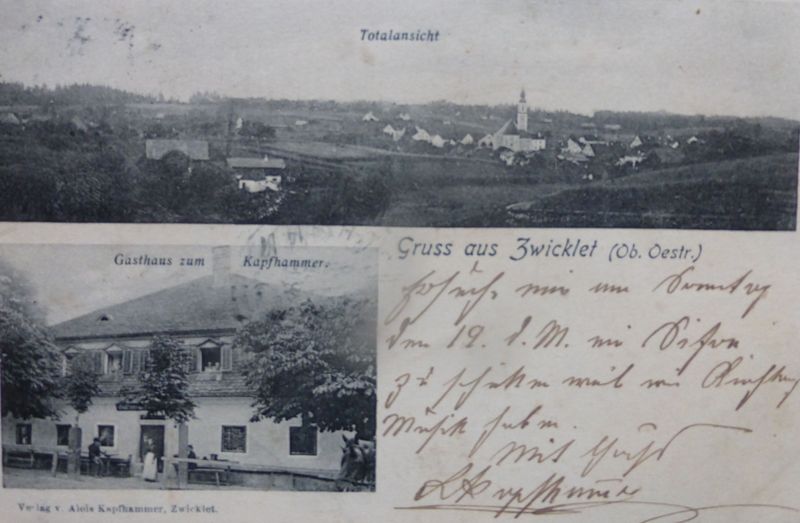 Totalansicht
Gasthaus zum Kapfhammer.
Gruss aus Zwicklet (Ob. Oestr.)
Ersuche mir am Sonntag
den 19. d. M. ein Sifon
zu schicken weil wir Kirchtag
Musik haben.
Mit Gruß
Kapfhammer
Verlag v. Alois Kapfhammer, Zwicklet.